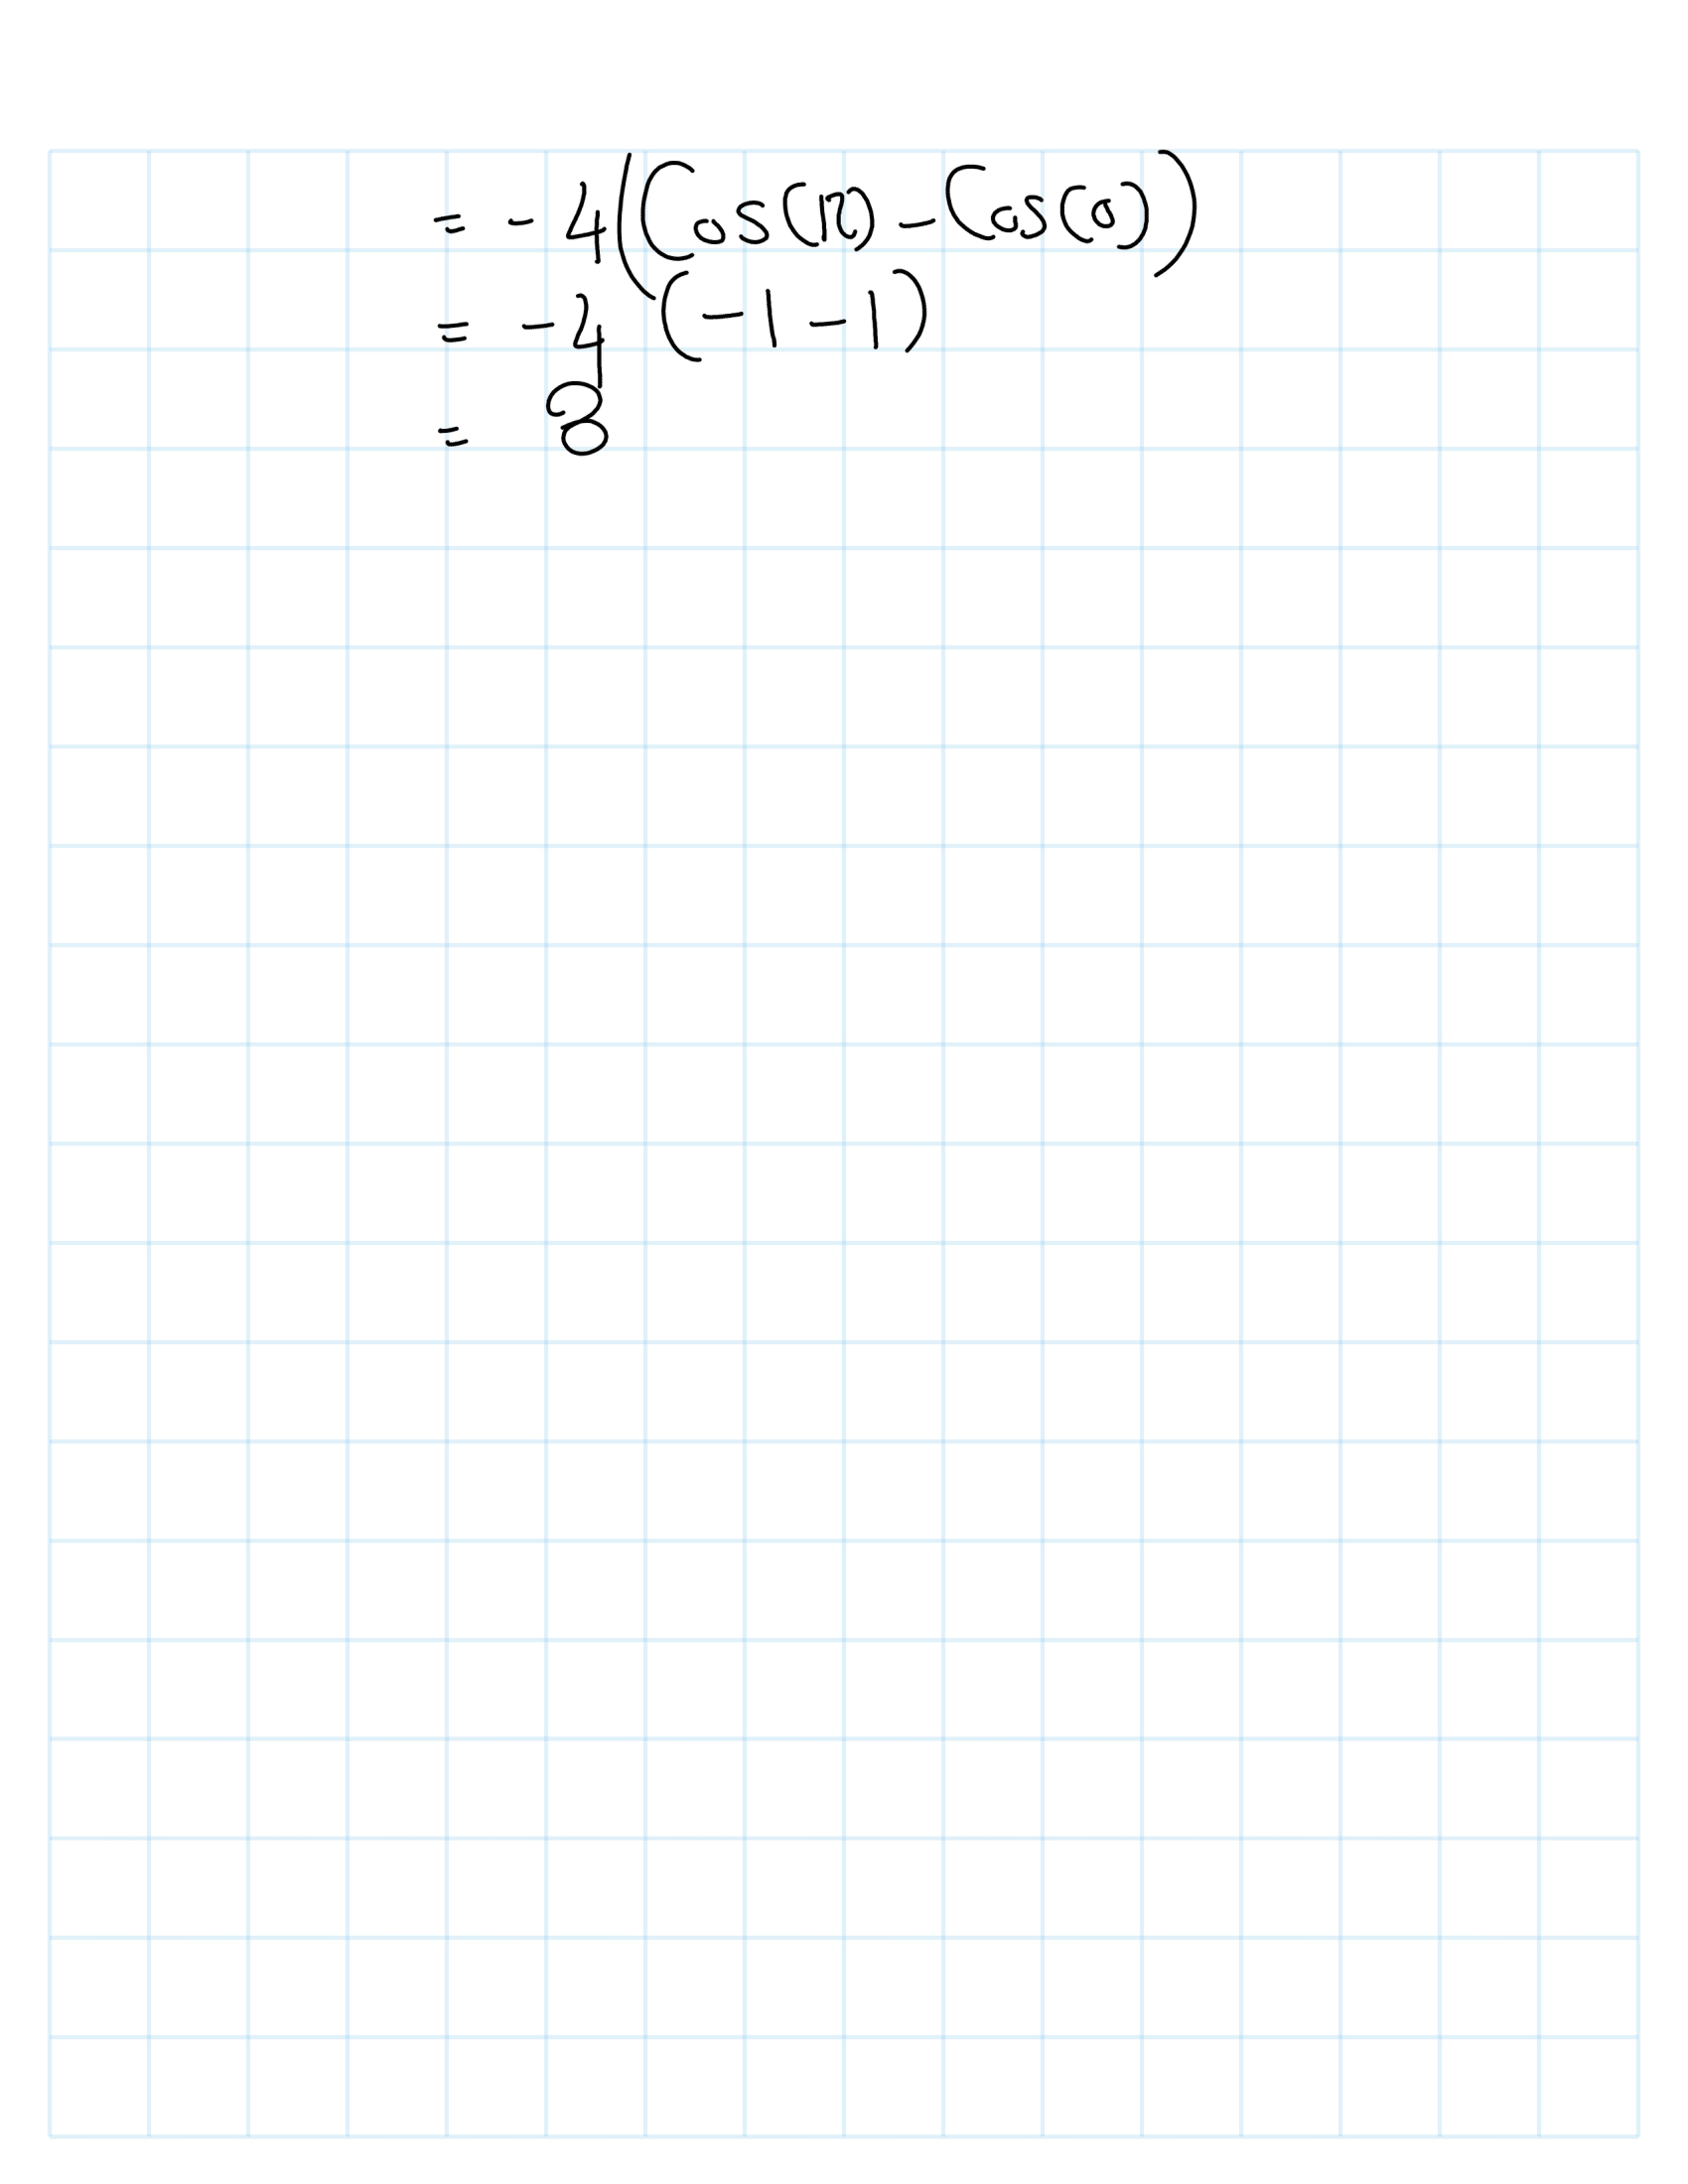 = - 4(Cos(π) - Cos(0))
= - 4 (-1 - 1)
= 8